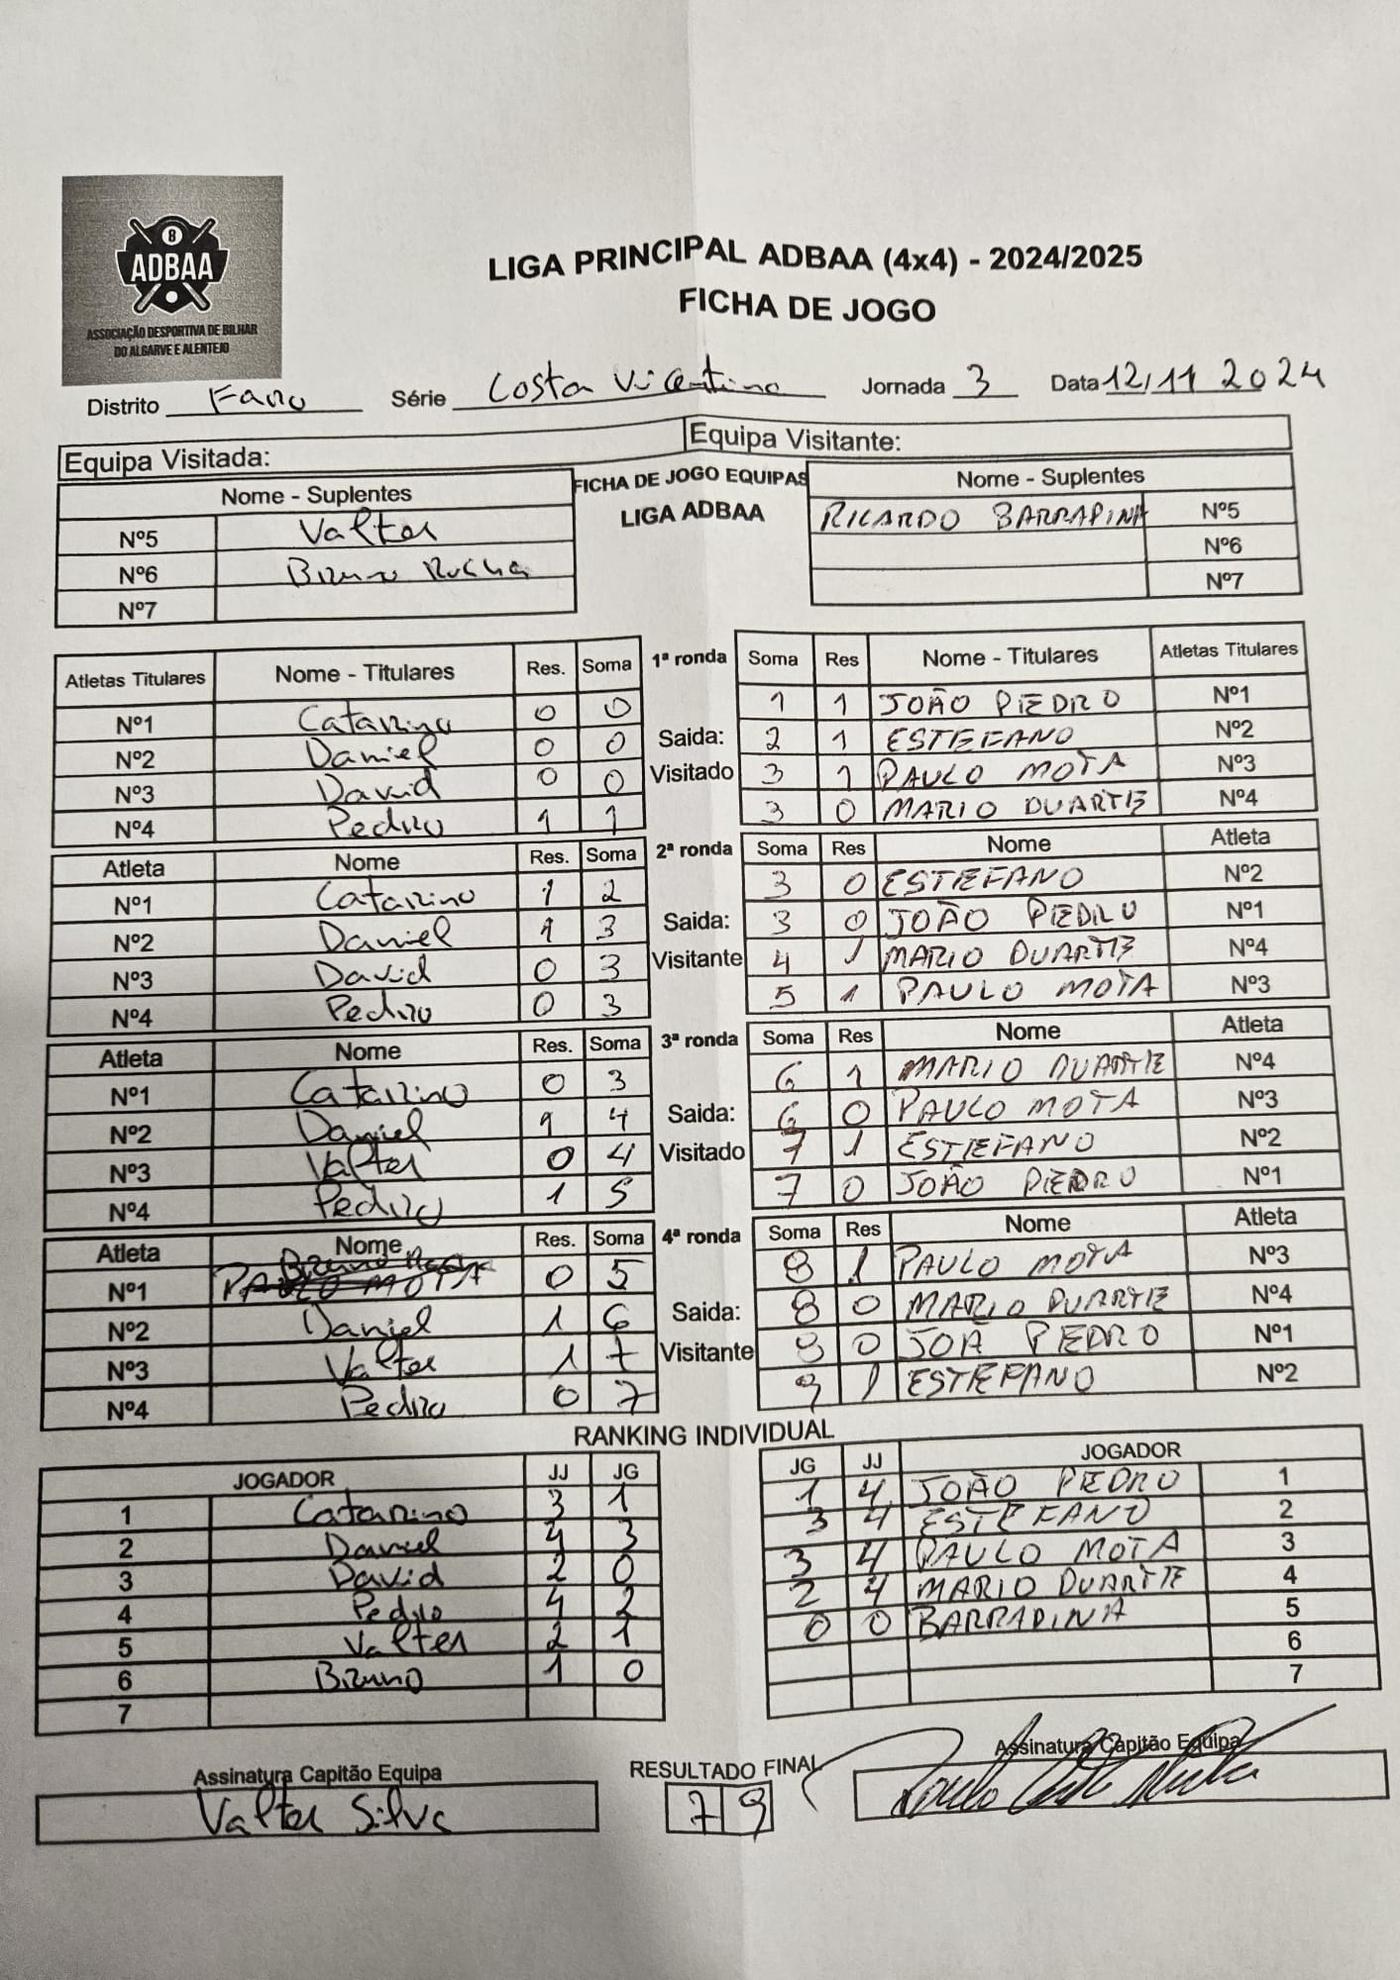 8
ADBAA
ASSOCIAÇÃO DESPORTIVA DE BILHAR
DO ALGARVE E ALENTEJO
LIGA PRINCIPAL ADBAA (4x4) - 2024/2025
FICHA DE JOGO
Distrito Faro Série Costa Vicentina Jornada 3 Data 12/11 2024
Equipa Visitada: Equipa Visitante:
Nome - Suplentes FICHA DE JOGO EQUIPAS Nome - Suplentes
LIGA ADBAA
Nº5 Valter RICARDO BARRADINA Nº5
Nº6 Bruno Rocha Nº6
Nº7 Nº7
Atletas Titulares Nome - Titulares Res. Soma 1ª ronda Soma Res Nome - Titulares Atletas Titulares
Nº1 Catarino 0 0 1 1 JOÃO PIEDRO Nº1
Nº2 Daniel 0 0 Saida: 2 1 ESTEFANO Nº2
Nº3 David 0 0 Visitado 3 1 PAULO MOTA Nº3
Nº4 Pedro 1 1 3 0 MARIO DUARTE Nº4
Atleta Nome Res. Soma 2ª ronda Soma Res Nome Atleta
Nº1 Catarino 1 2 3 0 ESTEFANO Nº2
Nº2 Daniel 1 3 Saida: 3 0 JOÃO PIEDRO Nº1
Nº3 David 0 3 Visitante 4 1 MARIO DUARTE Nº4
Nº4 Pedro 0 3 5 1 PAULO MOTA Nº3
Atleta Nome Res. Soma 3ª ronda Soma Res Nome Atleta
Nº1 Catarino 0 3 6 1 MARIO DUARTE Nº4
Nº2 Daniel 1 4 Saida: 6 0 PAULO MOTA Nº3
Nº3 Valter 0 4 Visitado 7 1 ESTEFANO Nº2
Nº4 Pedro 1 5 7 0 JOÃO PIEDRO Nº1
Atleta Nome Res. Soma 4ª ronda Soma Res Nome Atleta
Nº1 Bruno PAULO MOTA 0 5 8 1 PAULO MOTA Nº3
Nº2 Daniel 1 6 Saida: 8 0 MARIO DUARTE Nº4
Nº3 Valter 1 7 Visitante 8 0 JOÃ PIEDRO Nº1
Nº4 Pedro 0 7 9 1 ESTEFANO Nº2
RANKING INDIVIDUAL
JOGADOR JJ JG JG JJ JOGADOR
1 Catarino 3 1 1 4 JOÃO PEDRO 1
2 Daniel 4 3 3 4 ESTEFANO 2
3 David 2 0 3 4 PAULO MOTA 3
4 Pedro 4 2 2 4 MARIO DUARTE 4
5 Valter 2 1 0 0 BARRADINA 5
6 Bruno 1 0 6
7 7
Assinatura Capitão Equipa RESULTADO FINAL Assinatura Capitão Equipa
Valter Silva 7 9